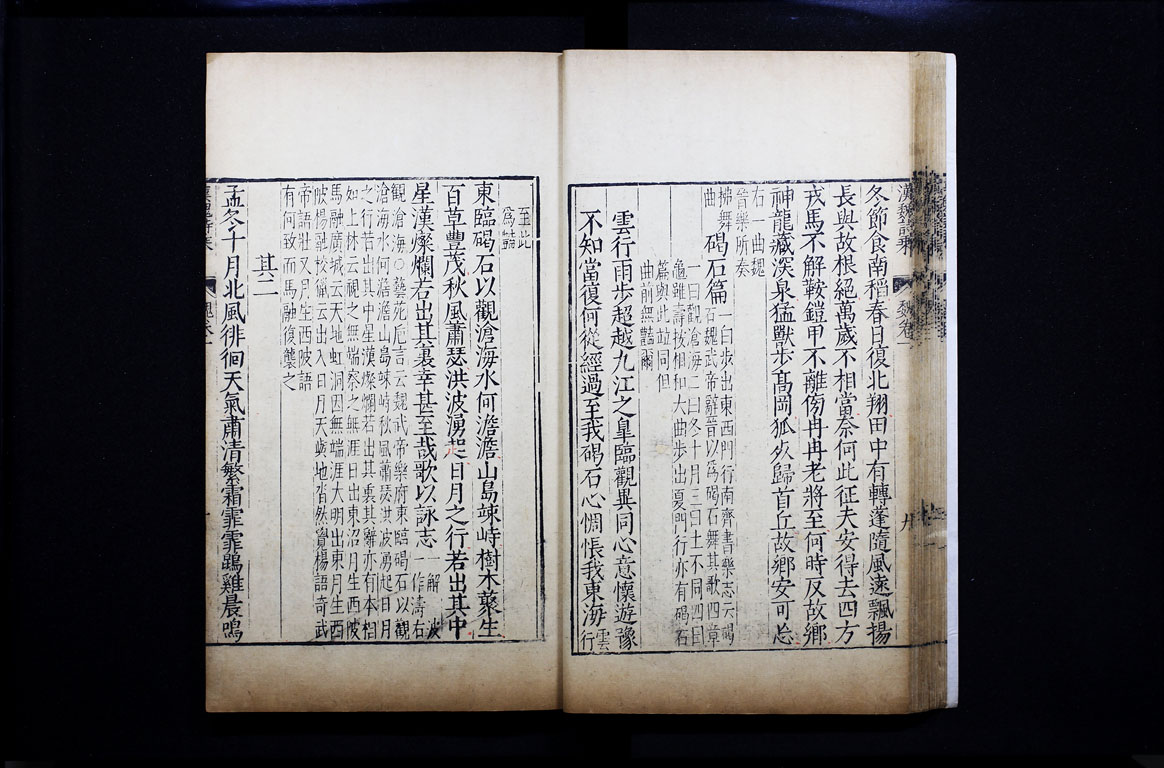 漢魏詩乘
魏卷一
九
冬節食南稻春日復北翔田中有轉蓬隨風遠飄揚
長與故根絕萬歲不相當奈何此征夫安得去四方
戎馬不解鞍鎧甲不離傍冉冉老將至何時反故鄉
神龍藏深泉猛獸步高岡狐死歸首丘故鄉安可忘
右一曲魏
晉樂所奏
拂舞
曲
碣石篇
一曰步出東西門行南齊書樂志云碣
石魏武帝辭晉以為碣石舞其歌四章
一曰觀滄海二曰冬十月三曰土不同四曰
龜雖壽按相和大曲步出夏門行亦有碣石
篇與此竝同但
曲前無豔爾
雲行雨步超越九江之臯臨觀異同心意懷遊豫
不知當復何從經過至我碣石心惆悵我東海
雲
行
至此
為豔
東臨碣石以觀滄海水何澹澹山島竦峙樹木叢生
百草豐茂秋風蕭瑟洪波湧起日月之行若出其中
星漢燦爛若出其裏幸甚至哉歌以詠志
一解 波
一作濤右
觀滄海○藝苑卮言云魏武帝樂府東臨碣石以觀
滄海水何澹澹山島竦峙秋風蕭瑟洪波湧起日月
之行若出其中星漢燦爛若出其裏其辭亦有本相
如上林云視之無端察之無涯日出東沼月生西陂
馬融廣城云天地虹洞因無端涯大明出東月生西
陂楊雄校獵云出入日月天與地沓然覺楊語奇武
帝語壯又月生西陂語
有何致而馬融復襲之
其二
孟冬十月北風徘徊天氣肅清繁霜霏霏鵾雞晨鳴